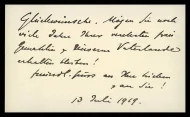 Glückwünsche. Mögen Sie noch
viele Jahre Ihrer verehrten Frau
Gemahlin & Ihrem Vaterlande
erhalten bleiben!
freundl. Gruss an Ihre Lieben
& an Sie!
13 Juli 1959.